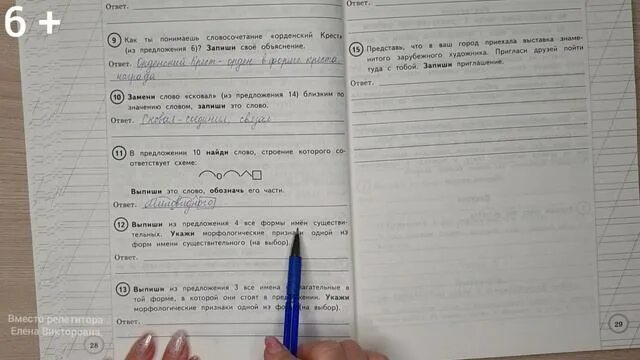 6 +
Ответ.
9 Как ты понимаешь словосочетание «орденский Крест»
(из предложения 6)? Запиши своё объяснение.
Ответ. Орденский Крест - орден в форме креста,
награда
10 Замени слово «сковал» (из предложения 14) близким по
значению словом, запиши это слово.
Ответ. Сковал - соединил, связал
11 В предложении 10 найди слово, строение которого со-
ответствует схеме:
Выпиши это слово, обозначь его части.
Ответ.
12 Выпиши из предложения 4 все формы имён существи-
тельных. Укажи морфологические признаки одной из
форм имени существительного (на выбор).
Ответ.
13 Выпиши из предложения 3 все имена прилагательные в
той форме, в которой они стоят в предложении. Укажи
морфологические признаки одной из форм (на выбор).
Ответ.
28
Вместо репетитора
Елена Викторовна
15 Представь, что в ваш город приехала выставка знаме-
нитого зарубежного художника. Пригласи друзей пойти
туда с тобой. Запиши приглашение.
Ответ.
29